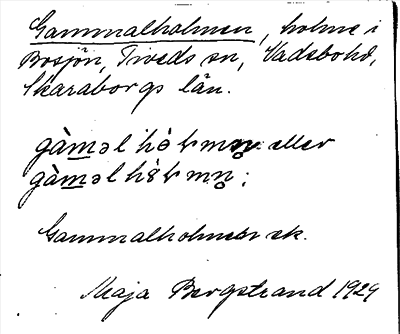 Gammalholmen, holme i
Bosjön, Tiveds sn, Vadsbo hd,
Skaraborgs län.
gàm̲əl hòɫmn̥ eller
gàm̲əl hɔ̀ɫmn̥:
Gammalholmen ek.
Maja Bergstrand 1929